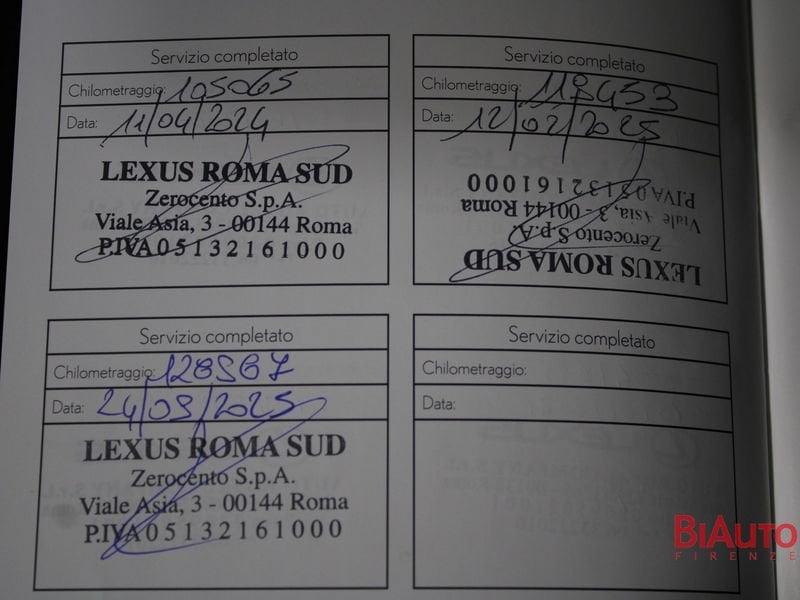 Servizio completato
Chilometraggio: 105065
Data: 11/04/2024
LEXUS ROMA SUD
Zerocento S.p.A.
Viale Asia, 3 - 00144 Roma
P.IVA 05132161000
Servizio completato
Chilometraggio:
Data: 12/02/2025
LEXUS ROMA SUD
Zerocento S.p.A.
Viale Asia, 3 - 00144 Roma
P.IVA 05132161000
Servizio completato
Chilometraggio:
Data: 24/09/2025
LEXUS ROMA SUD
Zerocento S.p.A.
Viale Asia, 3 - 00144 Roma
P.IVA 05132161000
Servizio completato
Chilometraggio:
Data:
BIAUTO
FIRENZE